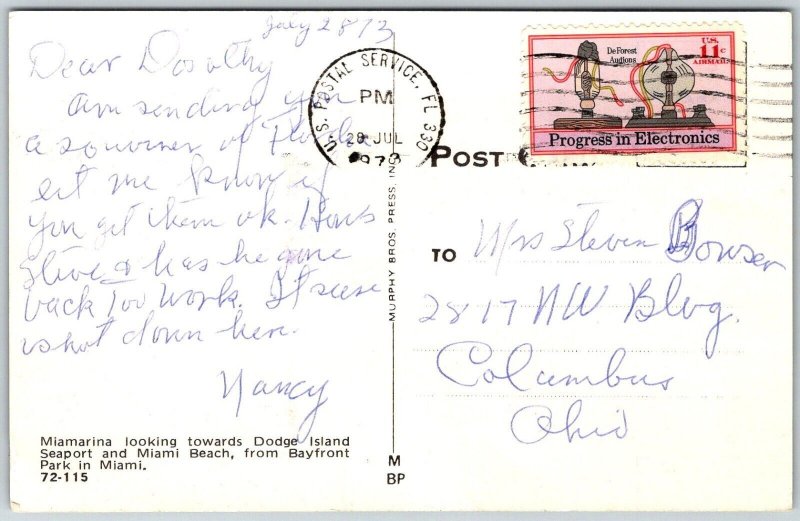 July 28 73
Dear Dorothy
Am sending you
a souvener of Florida
Let me know if
you get them ok. Hows
Steve & has he gone
back Too Work. It sure
is hot down here.
Nancy
Miamarina looking towards Dodge Island
Seaport and Miami Beach, from Bayfront
Park in Miami.
72-115
MURPHY BROS. PRESS, INC.
M
BP
U.S. POSTAL SERVICE, FL 330
PM
28 JUL
1973
De Forest
Audions
U.S.
11c
AIRMAIL
Progress in Electronics
POST
TO
Mrs Steven Bowser
2817 NW Blvg.
Columbus
Ohio